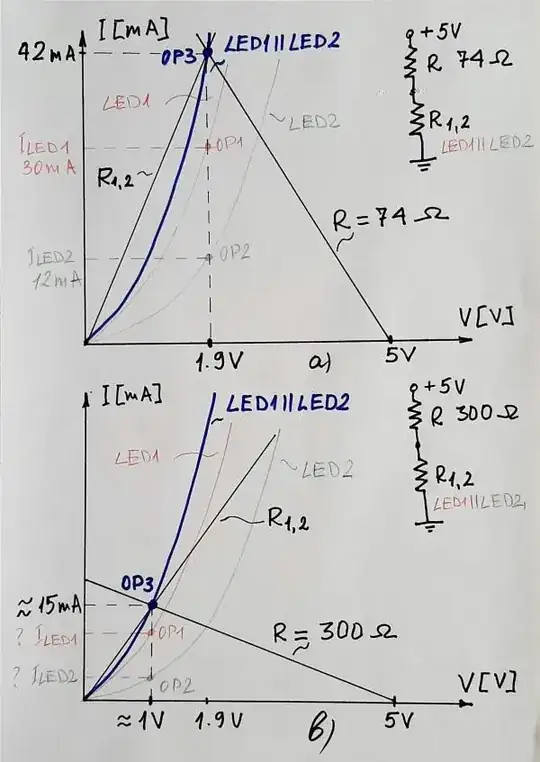 I [mA]
42mA
OP3
LED1||LED2
+5V
R 74 Ω
R1,2
LED1||LED2
LED1
LED2
ILED1
30mA
OP1
R1,2
R = 74 Ω
ILED2
12mA
OP2
V [V]
1.9V
a)
5V
I [mA]
LED1||LED2
+5V
R 300 Ω
R1,2
LED1||LED2
LED1
LED2
R1,2
OP3
≈ 15mA
? ILED1
OP1
R = 300 Ω
? ILED2
OP2
V [V]
≈1V
1.9V
5V